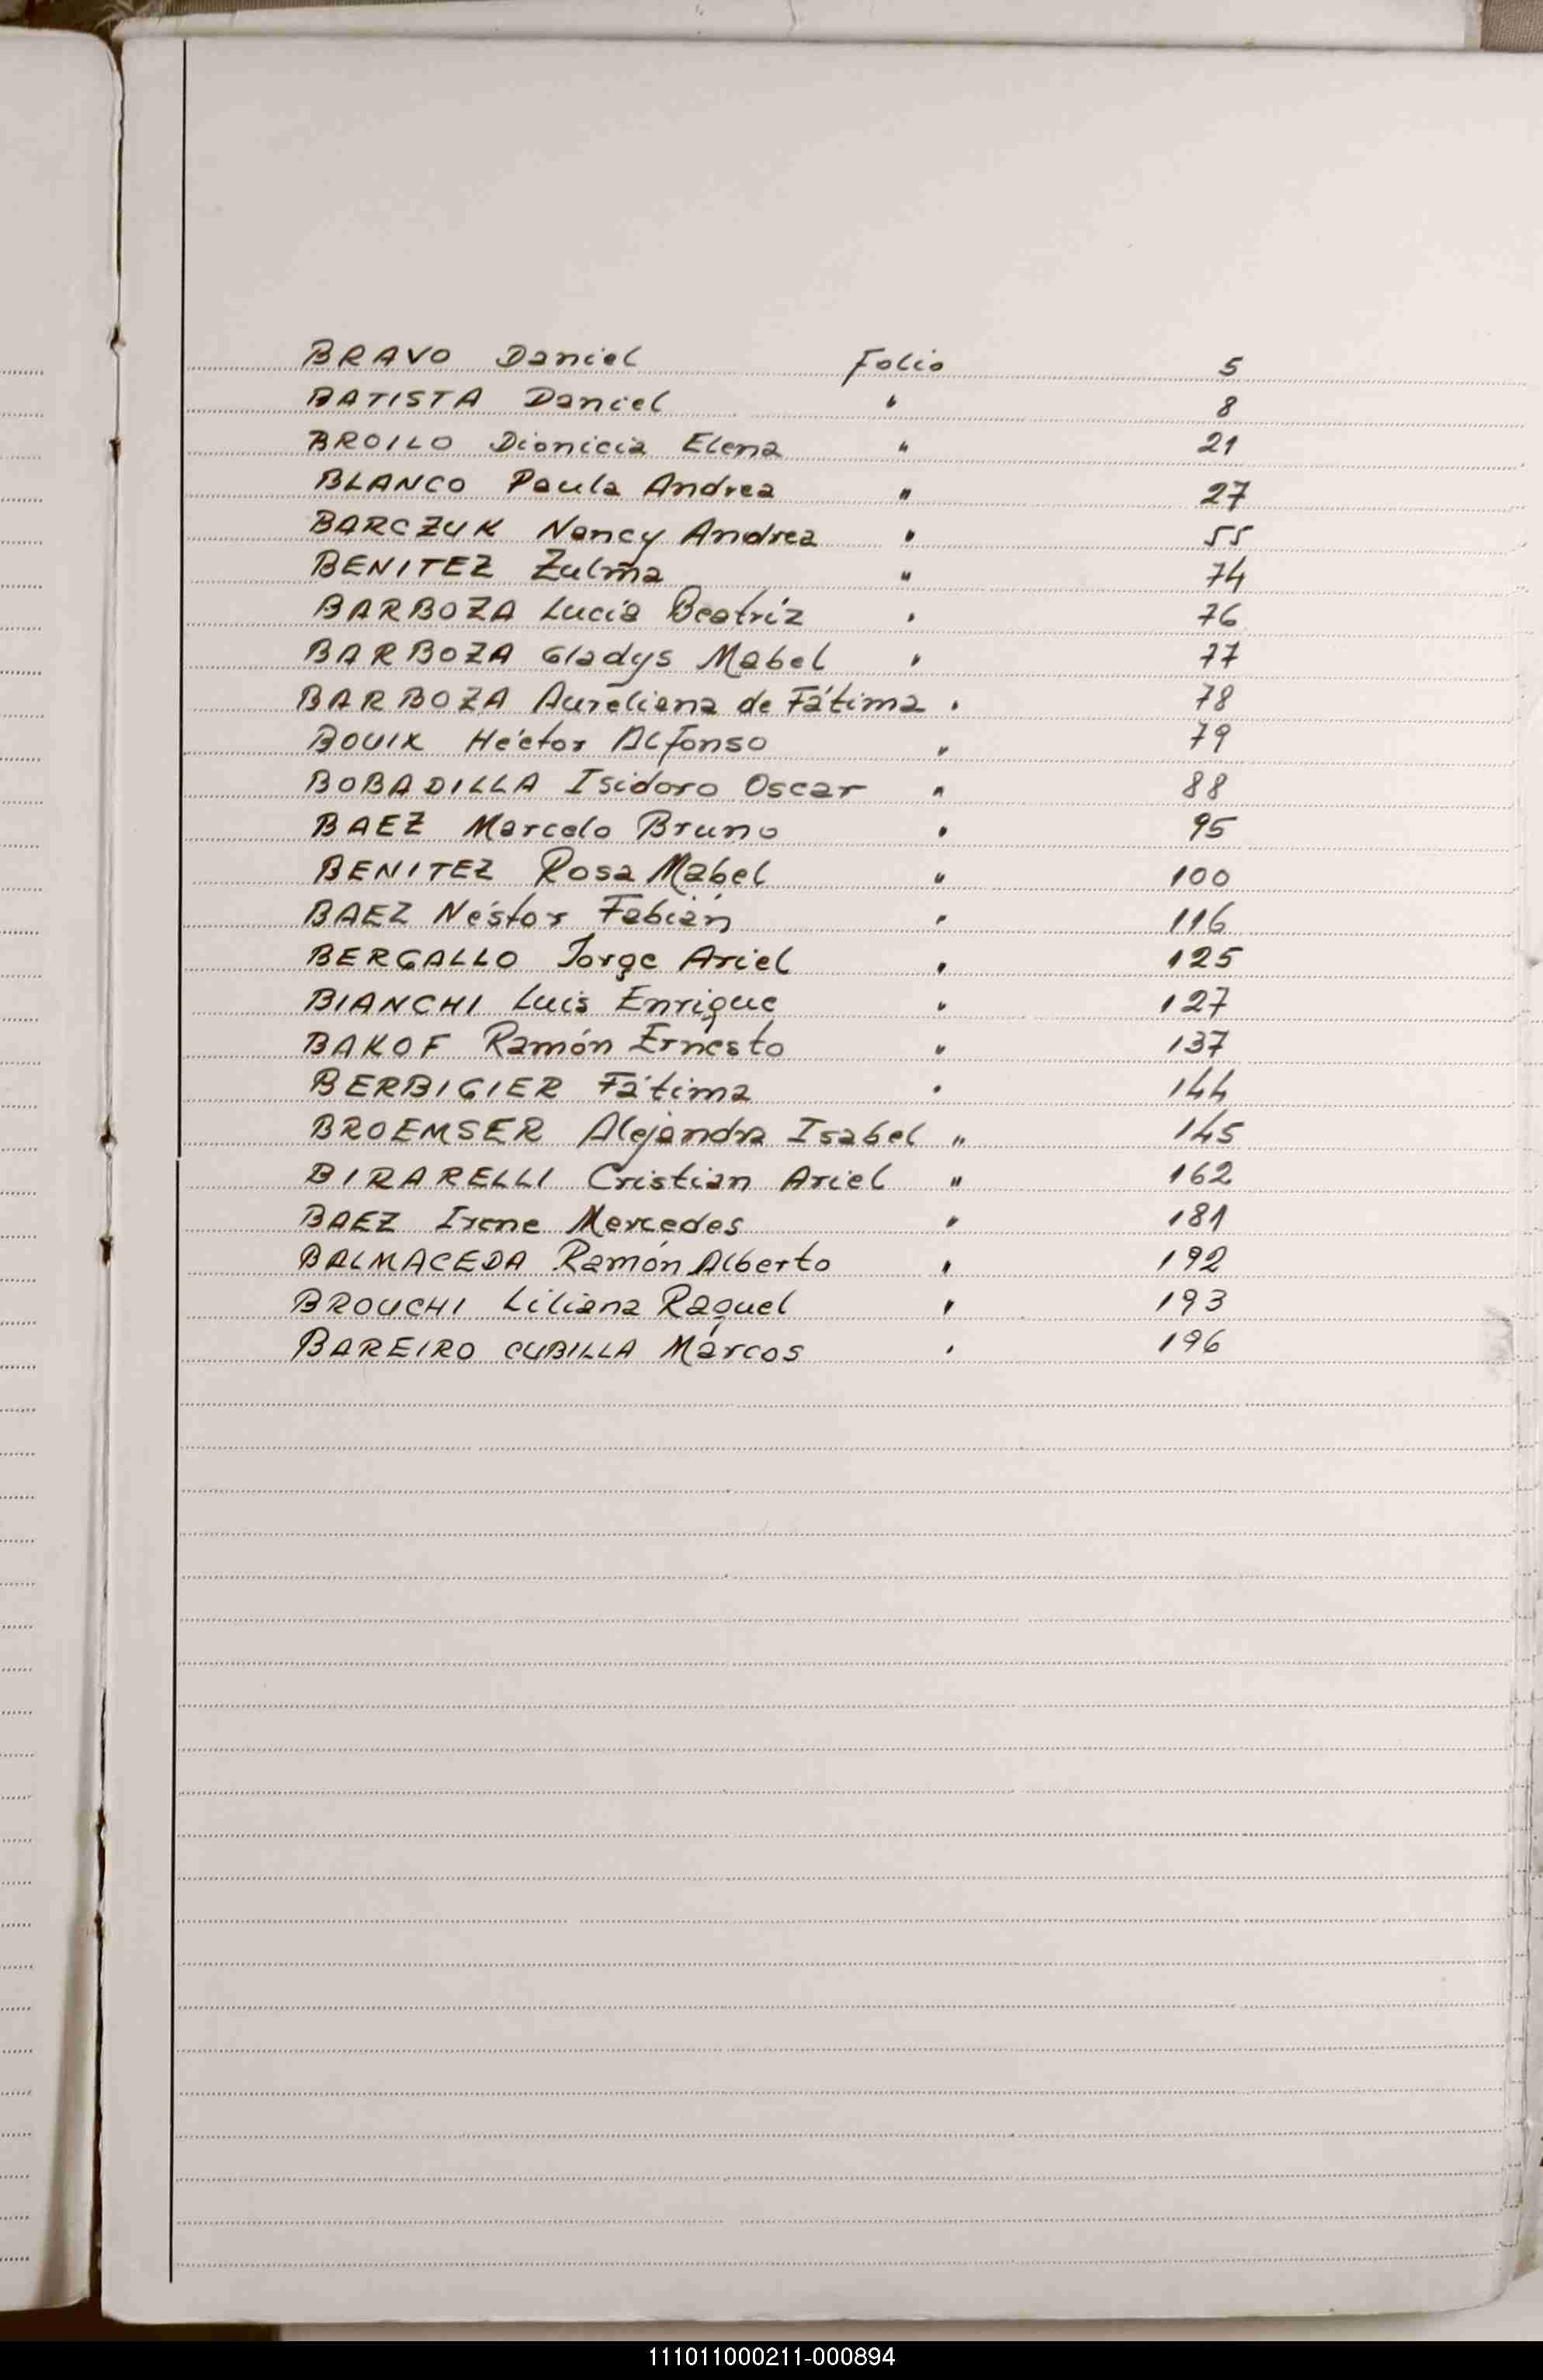 BRAVO Daniel Folio 5
BATISTA Daniel " 8
BROILO Dionicia Elena " 21
BLANCO Paula Andrea " 27
BARCZUK Nancy Andrea " 55
BENITEZ Zulma " 74
BARBOZA Lucia Beatriz " 76
BARBOZA Gladys Mabel " 77
BARBOZA Aureliana de Fátima " 78
BOUIX Héctor Alfonso " 79
BOBADILLA Isidoro Oscar " 88
BAEZ Marcelo Bruno " 95
BENITEZ Rosa Mabel " 100
BAEZ Néstor Fabián " 116
BERGALLO Jorge Ariel " 125
BIANCHI Luis Enrique " 127
BAKOF Ramón Ernesto " 137
BERBIGIER Fátima " 144
BROEMSER Alejandra Isabel " 145
BIRARELLI Cristian Ariel " 162
BAEZ Irene Mercedes " 181
BALMACEDA Ramón Alberto " 192
BROUCHI Liliana Raquel " 193
BAREIRO CUBILLA Márcos " 196
111011000211-000894